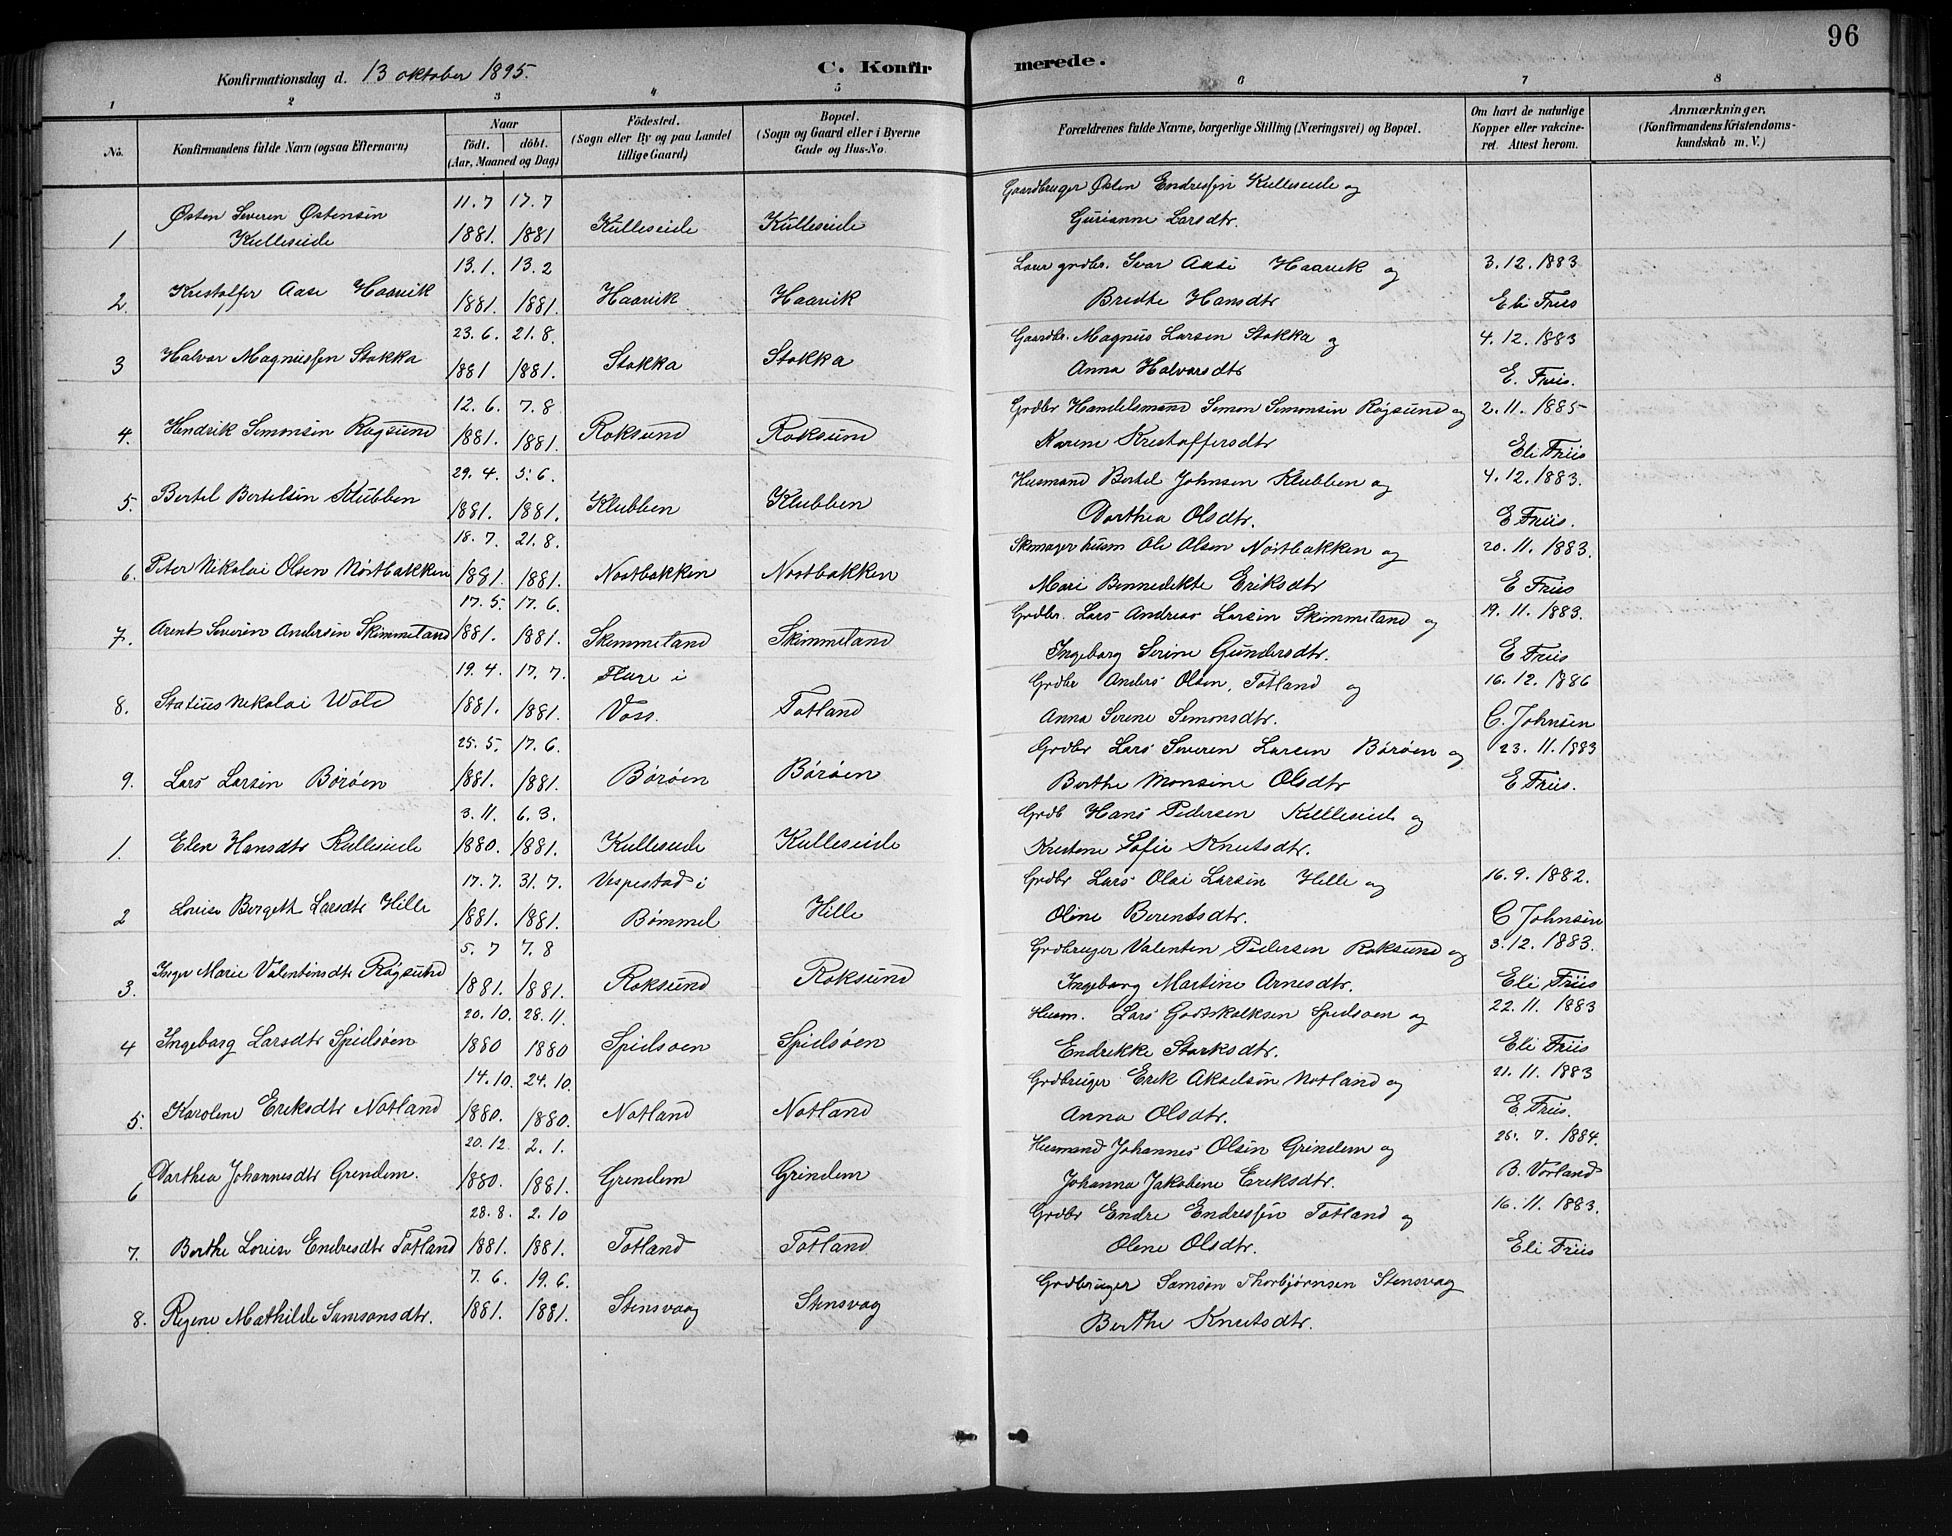 96
Konfirmationsdag d. 13 oktober 1895.
C. Konfirmerede.
1 2 3 4 5 6 7 8
No. Konfirmandens fulde Navn (ogsaa Efternavn) Naar födt. döbt. (Aar, Maaned og Dag) Födested. (Sogn eller By og paa Landet tillige Gaard) Bopæl. (Sogn og Gaard eller i Byerne Gade og Hus-No. Forældrenes fulde Navne, borgerlige Stilling (Næringsvei) og Bopæl. Om havt de naturlige Kopper eller vakcineret. Attest herom. Anmærkninger. (Konfirmandens Kristendomskundskab m. V.)
11.7 17.7 Gaardbruger Østen Endressen Kulleseide og
1 Østen Severin Østensen Kulleseide 1881. 1881 Kulleseide Kulleseide Gurianne Larsdtr.
13.1. 13.2 grdbr. Ivar Aase Haavik og 3.12.1883
2. Kristoffer Aase Haavik 1881. 1881. Haavik Haavik Bredte Hansdtr Eli Friis
23.6. 21.8. Gaardbr. Magnus Larsen Stokka og 4.12.1883
3 Halvor Magnussen Stokka 1881 1881. Stokka Stokka Anna Halvorsdtr E. Friis.
12.6. 7.8 Grdbr Handelsmand Simon Simonsen Røgsund og 2.11.1885
4. Hendrik Simonsen Røgsund 1881. 1881. Roksund Roksund Karine Kristoffersdtr Eli Friis
29.4. 5.6. Husmand Bertel Johnsen Klubben og 4.12.1883.
5. Bertel Bertelsen Klubben 1881. 1881. Klubben Klubben Dorthea Olsdtr. E Friis.
18.7. 21.8. Skomager husm Ole Olsen Nøstbakken og 20.11.1883.
6. Peter Nikolai Olsen Nøstbakken 1881. 1881. Nostbakken Nostbakken Mari Bennedikte Eriksdtr E Friis
17.5. 17.6. Grdbr. Lars Andreas Larsen Skimmeland og 19.11.1883.
7. Arent Severin Andersen Skimmeland 1881. 1881. Skimmeland Skimmeland Ingeborg Serine Gundersdtr. E Friis
19.4. 17.7. Flare i Grdbr Anders Olsen Totland og 16.12.1886
8. Statius Nikolai Wold 1881. 1881. Voss. Totland Anna Serene Simonsdtr. C. Johnsen
25.5. 17.6. Grdbr Lars Severin Larsen Børøen og 23.11.1883
9. Lars Larsen Børøen 1881. 1881. Børøen Børøen Berthe Monsine Olsdtr E Friis.
3.11. 6.3. Grdb Hans Pedersen Kulleseide og
1. Elen Hansdtr Kulleseide 1880. 1881. Kulleseide Kulleseide Kristine Sofie Knutsdtr.
17.7. 31.7. Vespestad i Grdbr Lars Olai Larsen Hille og 16.9.1882.
2 Louise Bergeth Larsdtr Hille 1881. 1881. Bømmel Hille Oline Berentsdtr. C Johnsen
5.7 7.8 Grdbruger Valentin Pedersen Roksund og 3.12.1883.
3. Inger Marie Valentinsdtr Røgsund 1881. 1881. Roksund Roksund Ingeborg Martine Arnesdtr. Eli Friis
20.10. 28.11. Husm. Lars Godtskalksen Spidsøen og 22.11.1883
4 Ingeborg Larsdtr Spidsøen 1880 1880 Spidsøen Spidsøen Endrikke Storksdtr. Eli Friis
14.10. 24.10. Grdbruger Erik Akselsen Notland og 21.11.1883
5. Karoline Eriksdtr Notland 1880. 1880. Notland Notland Anna Olsdtr. E. Friis.
20.12. 2.1. Husmand Johannes Olsen Grindem og 25.7.1884.
6 Dorthea Johannesdtr Grindem. 1880. 1881. Grindem Grindem Johanna Jakobine Eriksdtr. B. Vorland
28.8. 2.10 Grdbr Endre Endressen Totland og 16.11.1883.
7. Berthe Louise Endresdtr Totland 1881. 1881. Totland Totland Olene Olsdtr. Eli Friis
7.6. 19.6. Grdbruger Samson Thorbjørnsen Stensvag
8. Regine Mathilde Samsonsdtr. 1881. 1881. Stensvaag Stensvag Berthe Knutsdtr.